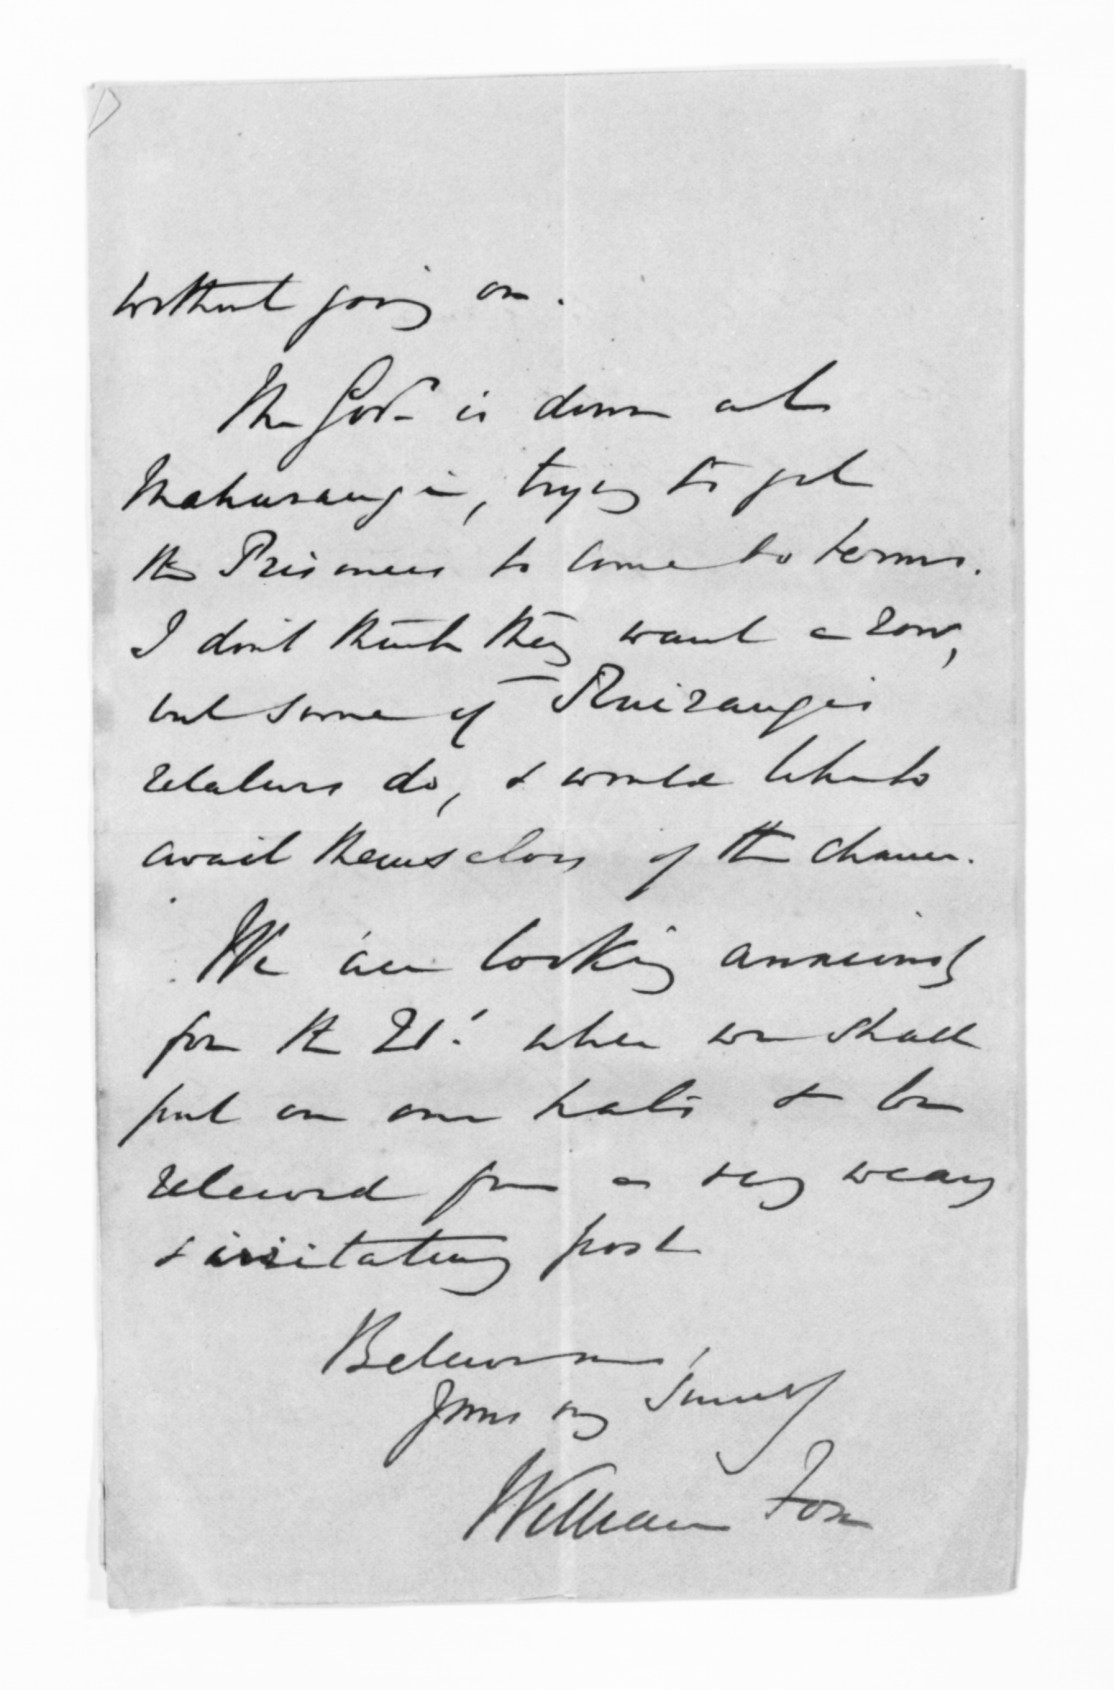 without going on.
The Govr is down at
Mahurangi, trying to get
the Prisoners to come to terms.
I don't think they want a row,
but some of
relations do, & would like to
avail themselves of the chance.
We are looking anxiously
for the 21st when we shall
put on our hats & be
relieved from a very weary
& irritating post
Believe me,
Yours very Sincerely
William Fox